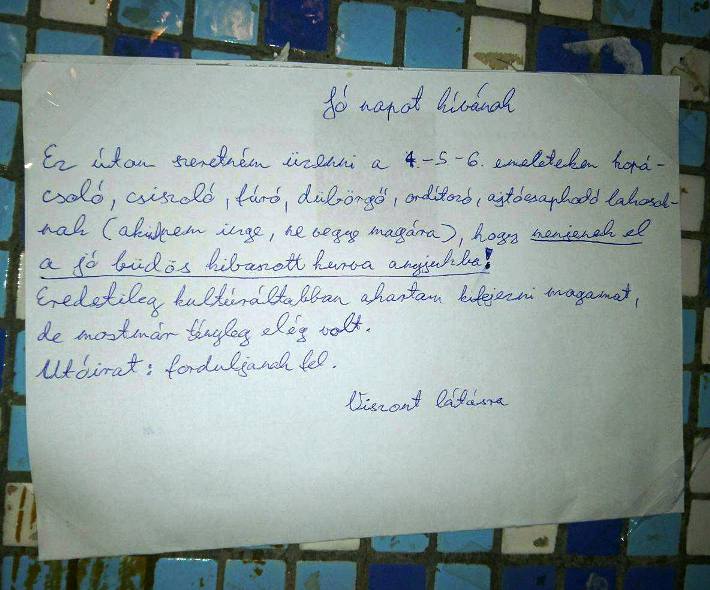 Jó napot kívánok
Ez úton szeretném üzenni a 4.-5-6. emeleteken kopá-
csoló, csiszoló, fúró, dübörgő, ordítozó, ajtócsapkodó lakosok-
nak (akit nem inge, ne vegye magára), hogy menjenek el
a jó büdös kibaszott kurva anyjukba!
Eredetileg kultúráltabban akartam kifejezni magamat,
de mostmár tényleg elég volt.
Utóirat: forduljanak fel.
Viszont látásra